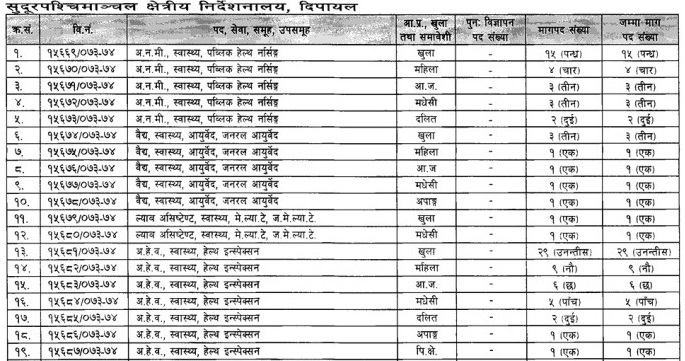 सुदूरपश्चिमाञ्चल क्षेत्रीय निर्देशनालय, दिपायल
क्र.सं. वि.नं. पद, सेवा, समूह, उपसमूह आ.प्र., खुला तथा समावेशी पुन: विज्ञापन पद संख्या मागपद संख्या जम्मा माग पद संख्या
१. १५६६९/०७३-७४ अ.न.मी., स्वास्थ्य, पब्लिक हेल्थ नर्सिङ्ग खुला - १५ (पन्ध्र) १५ (पन्ध्र)
२. १५६७०/०७३-७४ अ.न.मी., स्वास्थ्य, पब्लिक हेल्थ नर्सिङ्ग महिला - ४ (चार) ४ (चार)
३. १५६७१/०७३-७४ अ.न.मी., स्वास्थ्य, पब्लिक हेल्थ नर्सिङ्ग आ.ज. - ३ (तीन) ३ (तीन)
४. १५६७२/०७३-७४ अ.न.मी., स्वास्थ्य, पब्लिक हेल्थ नर्सिङ्ग मधेसी - ३ (तीन) ३ (तीन)
५. १५६७३/०७३-७४ अ.न.मी., स्वास्थ्य, पब्लिक हेल्थ नर्सिङ्ग दलित - २ (दुई) २ (दुई)
६. १५६७४/०७३-७४ वैद्य, स्वास्थ्य, आयुर्वेद, जनरल आयुर्वेद खुला - ३ (तीन) ३ (तीन)
७. १५६७५/०७३-७४ वैद्य, स्वास्थ्य, आयुर्वेद, जनरल आयुर्वेद महिला - १ (एक) १ (एक)
८. १५६७६/०७३-७४ वैद्य, स्वास्थ्य, आयुर्वेद, जनरल आयुर्वेद आ.ज - १ (एक) १ (एक)
९. १५६७७/०७३-७४ वैद्य, स्वास्थ्य, आयुर्वेद, जनरल आयुर्वेद मधेसी - १ (एक) १ (एक)
१०. १५६७८/०७३-७४ वैद्य, स्वास्थ्य, आयुर्वेद, जनरल आयुर्वेद अपाङ्ग - १ (एक) १ (एक)
११. १५६७९/०७३-७४ ल्याब असिष्टेण्ट, स्वास्थ्य, मे.ल्या.टे, ज.मे.ल्या.टे. खुला - १ (एक) १ (एक)
१२. १५६८०/०७३-७४ ल्याब असिष्टेण्ट, स्वास्थ्य, मे.ल्या.टे, ज.मे.ल्या.टे. मधेसी - १ (एक) १ (एक)
१३. १५६८१/०७३-७४ अ.हे.व., स्वास्थ्य, हेल्थ इन्स्पेक्सन खुला - २९ (उनन्तीस) २९ (उनन्तीस)
१४. १५६८२/०७३-७४ अ.हे.व., स्वास्थ्य, हेल्थ इन्स्पेक्सन महिला - ९ (नौ) ९ (नौ)
१५. १५६८३/०७३-७४ अ.हे.व., स्वास्थ्य, हेल्थ इन्स्पेक्सन आ.ज. - ६ (छ) ६ (छ)
१६. १५६८४/०७३-७४ अ.हे.व., स्वास्थ्य, हेल्थ इन्स्पेक्सन मधेसी - ५ (पाँच) ५ (पाँच)
१७. १५६८५/०७३-७४ अ.हे.व., स्वास्थ्य, हेल्थ इन्स्पेक्सन दलित - २ (दुई) २ (दुई)
१८. १५६८६/०७३-७४ अ.हे.व., स्वास्थ्य, हेल्थ इन्स्पेक्सन अपाङ्ग - १ (एक) १ (एक)
१९. १५६८७/०७३-७४ अ.हे.व., स्वास्थ्य, हेल्थ इन्स्पेक्सन पि.क्षे. - १ (एक) १ (एक)